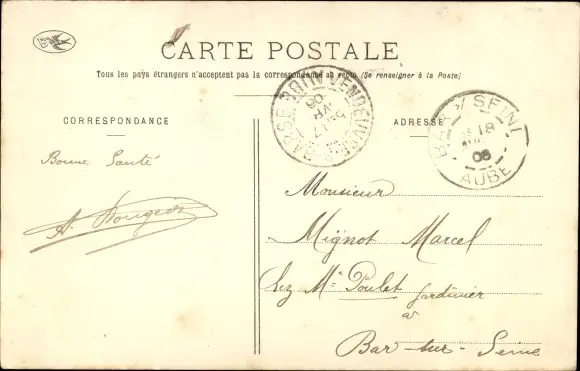 CARTE POSTALE
Tous les pays étrangers n'acceptent pas la correspondance au recto (Se renseigner à la Poste)
CORRESPONDANCE
ADRESSE
Bonne Santé
A.
VENDEUVRE
17
AVR
06
BAR S/ SEINE
18
06
AUBE
Monsieur
Mignot Marcel
Chez Mr Poulet Jardinier
à
Bar-sur-Seine